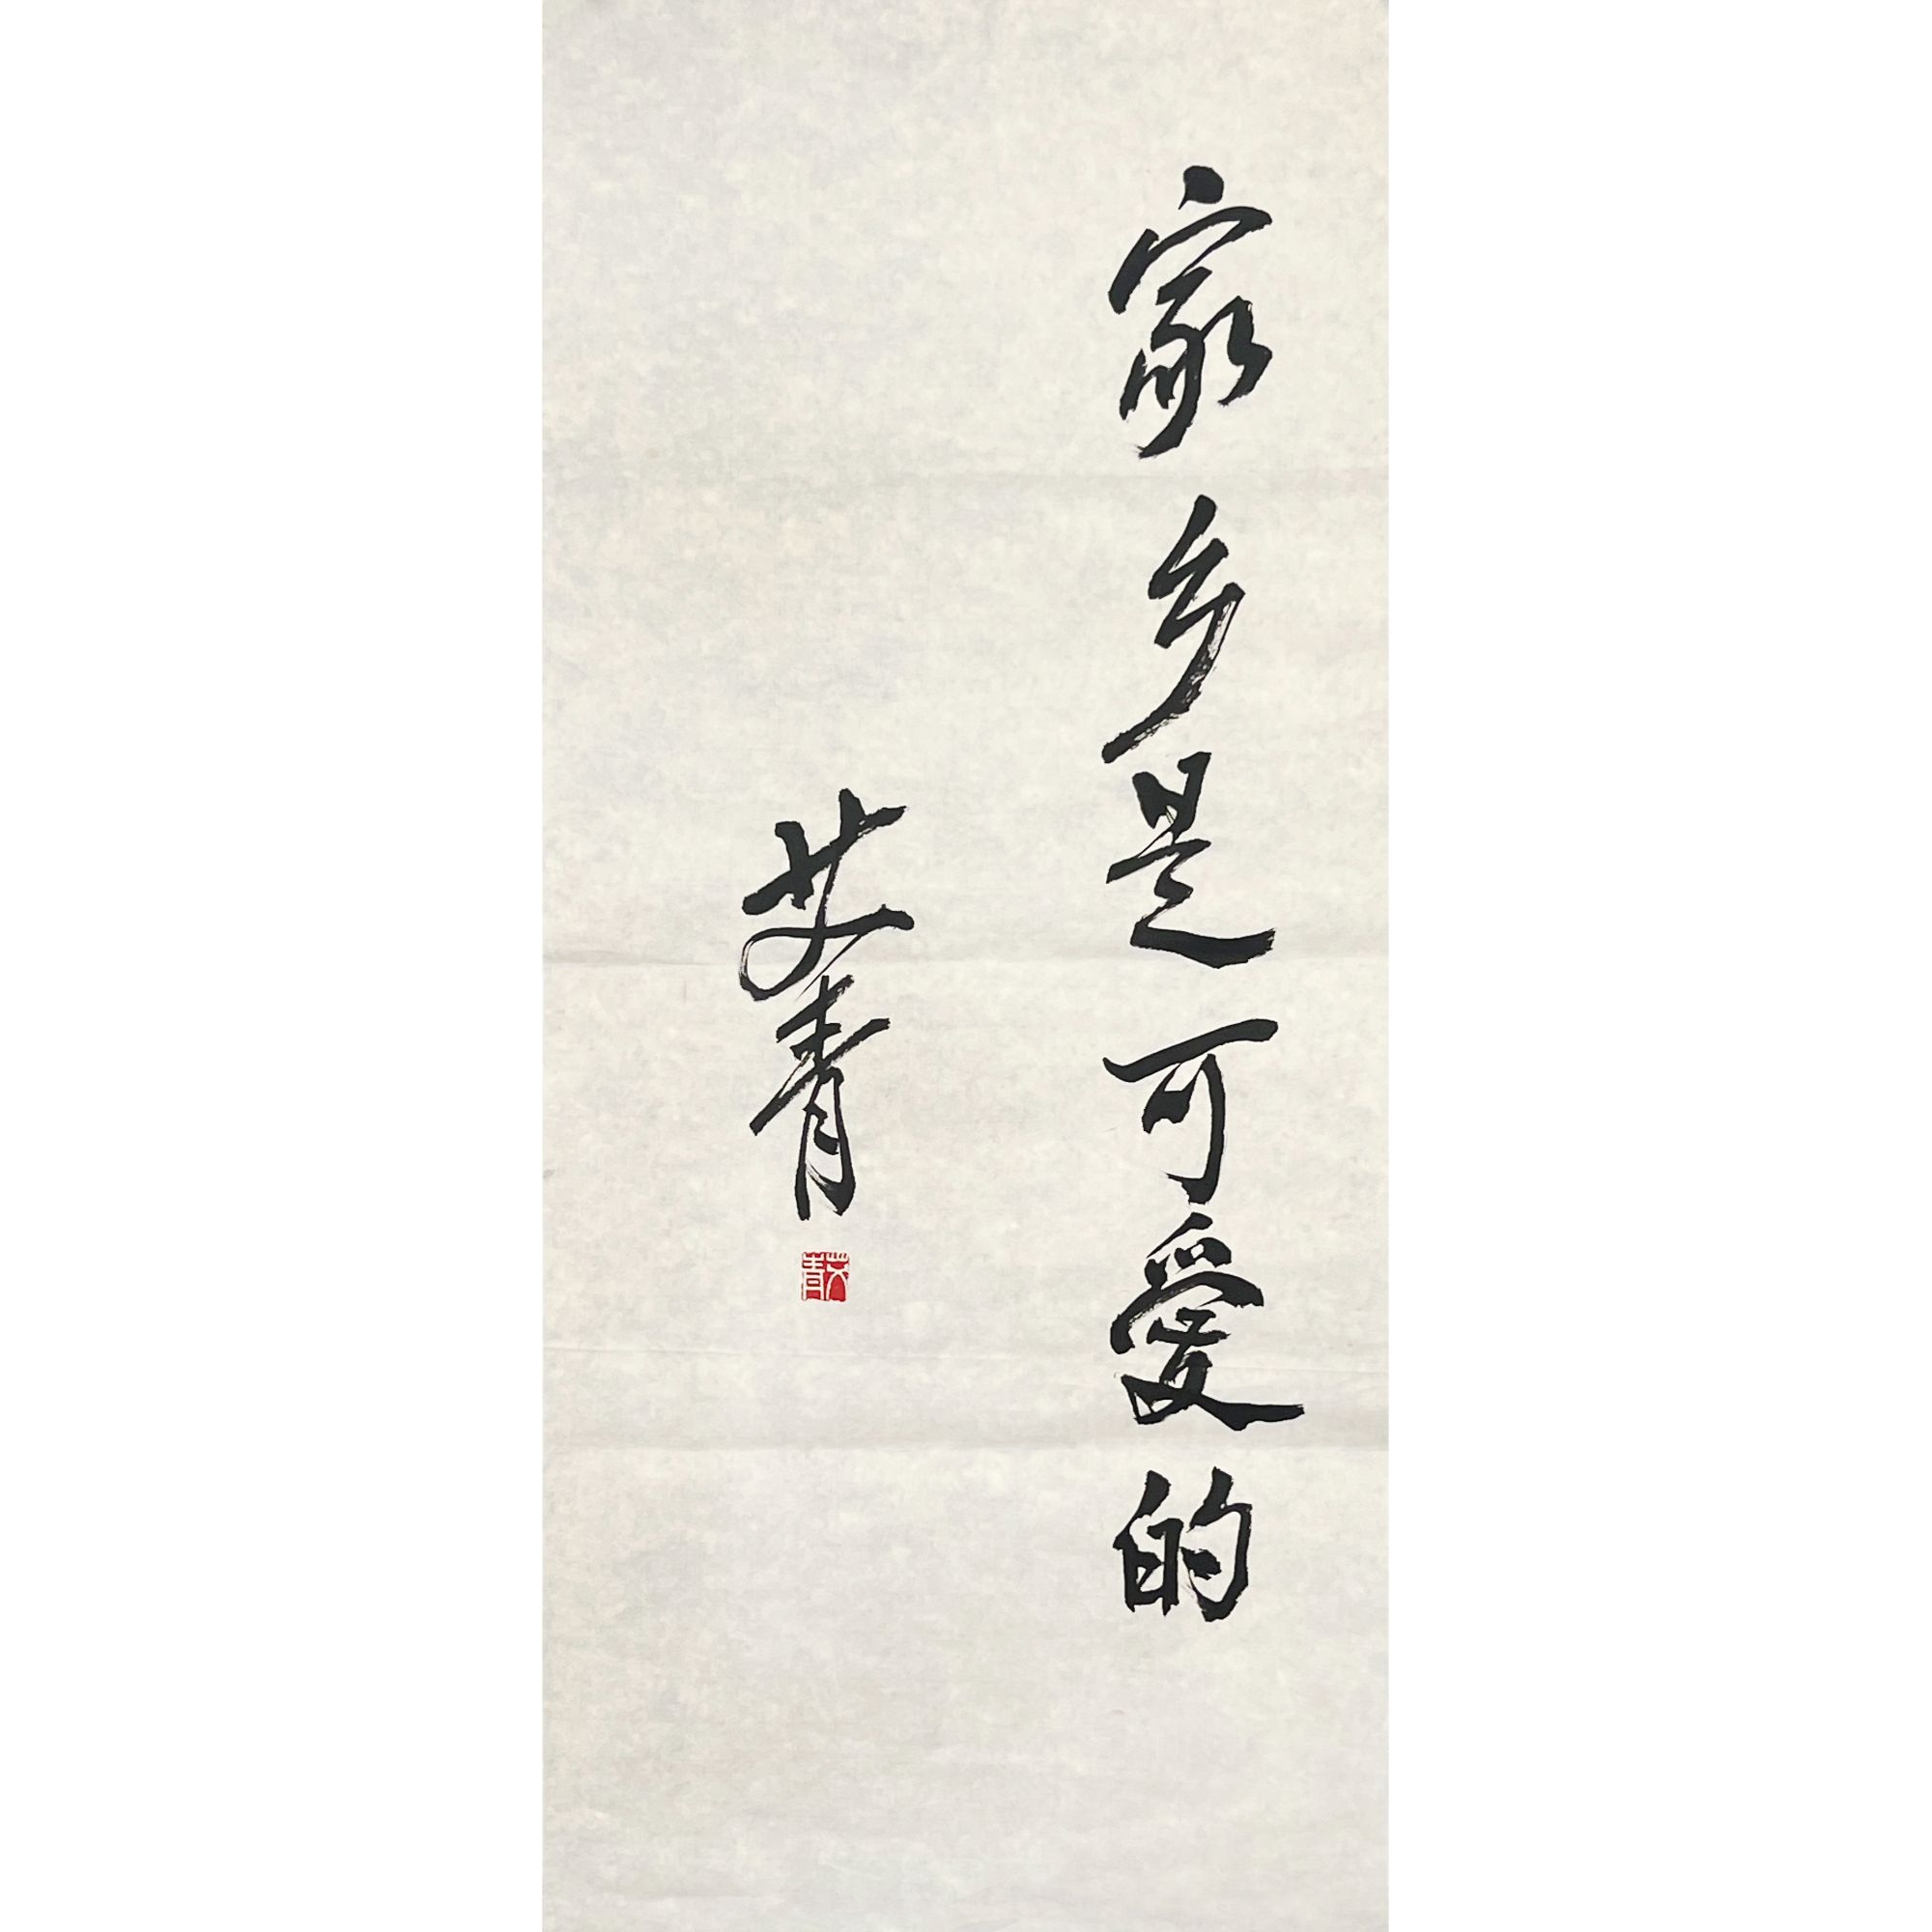 家乡是可爱的
艾青
艾青